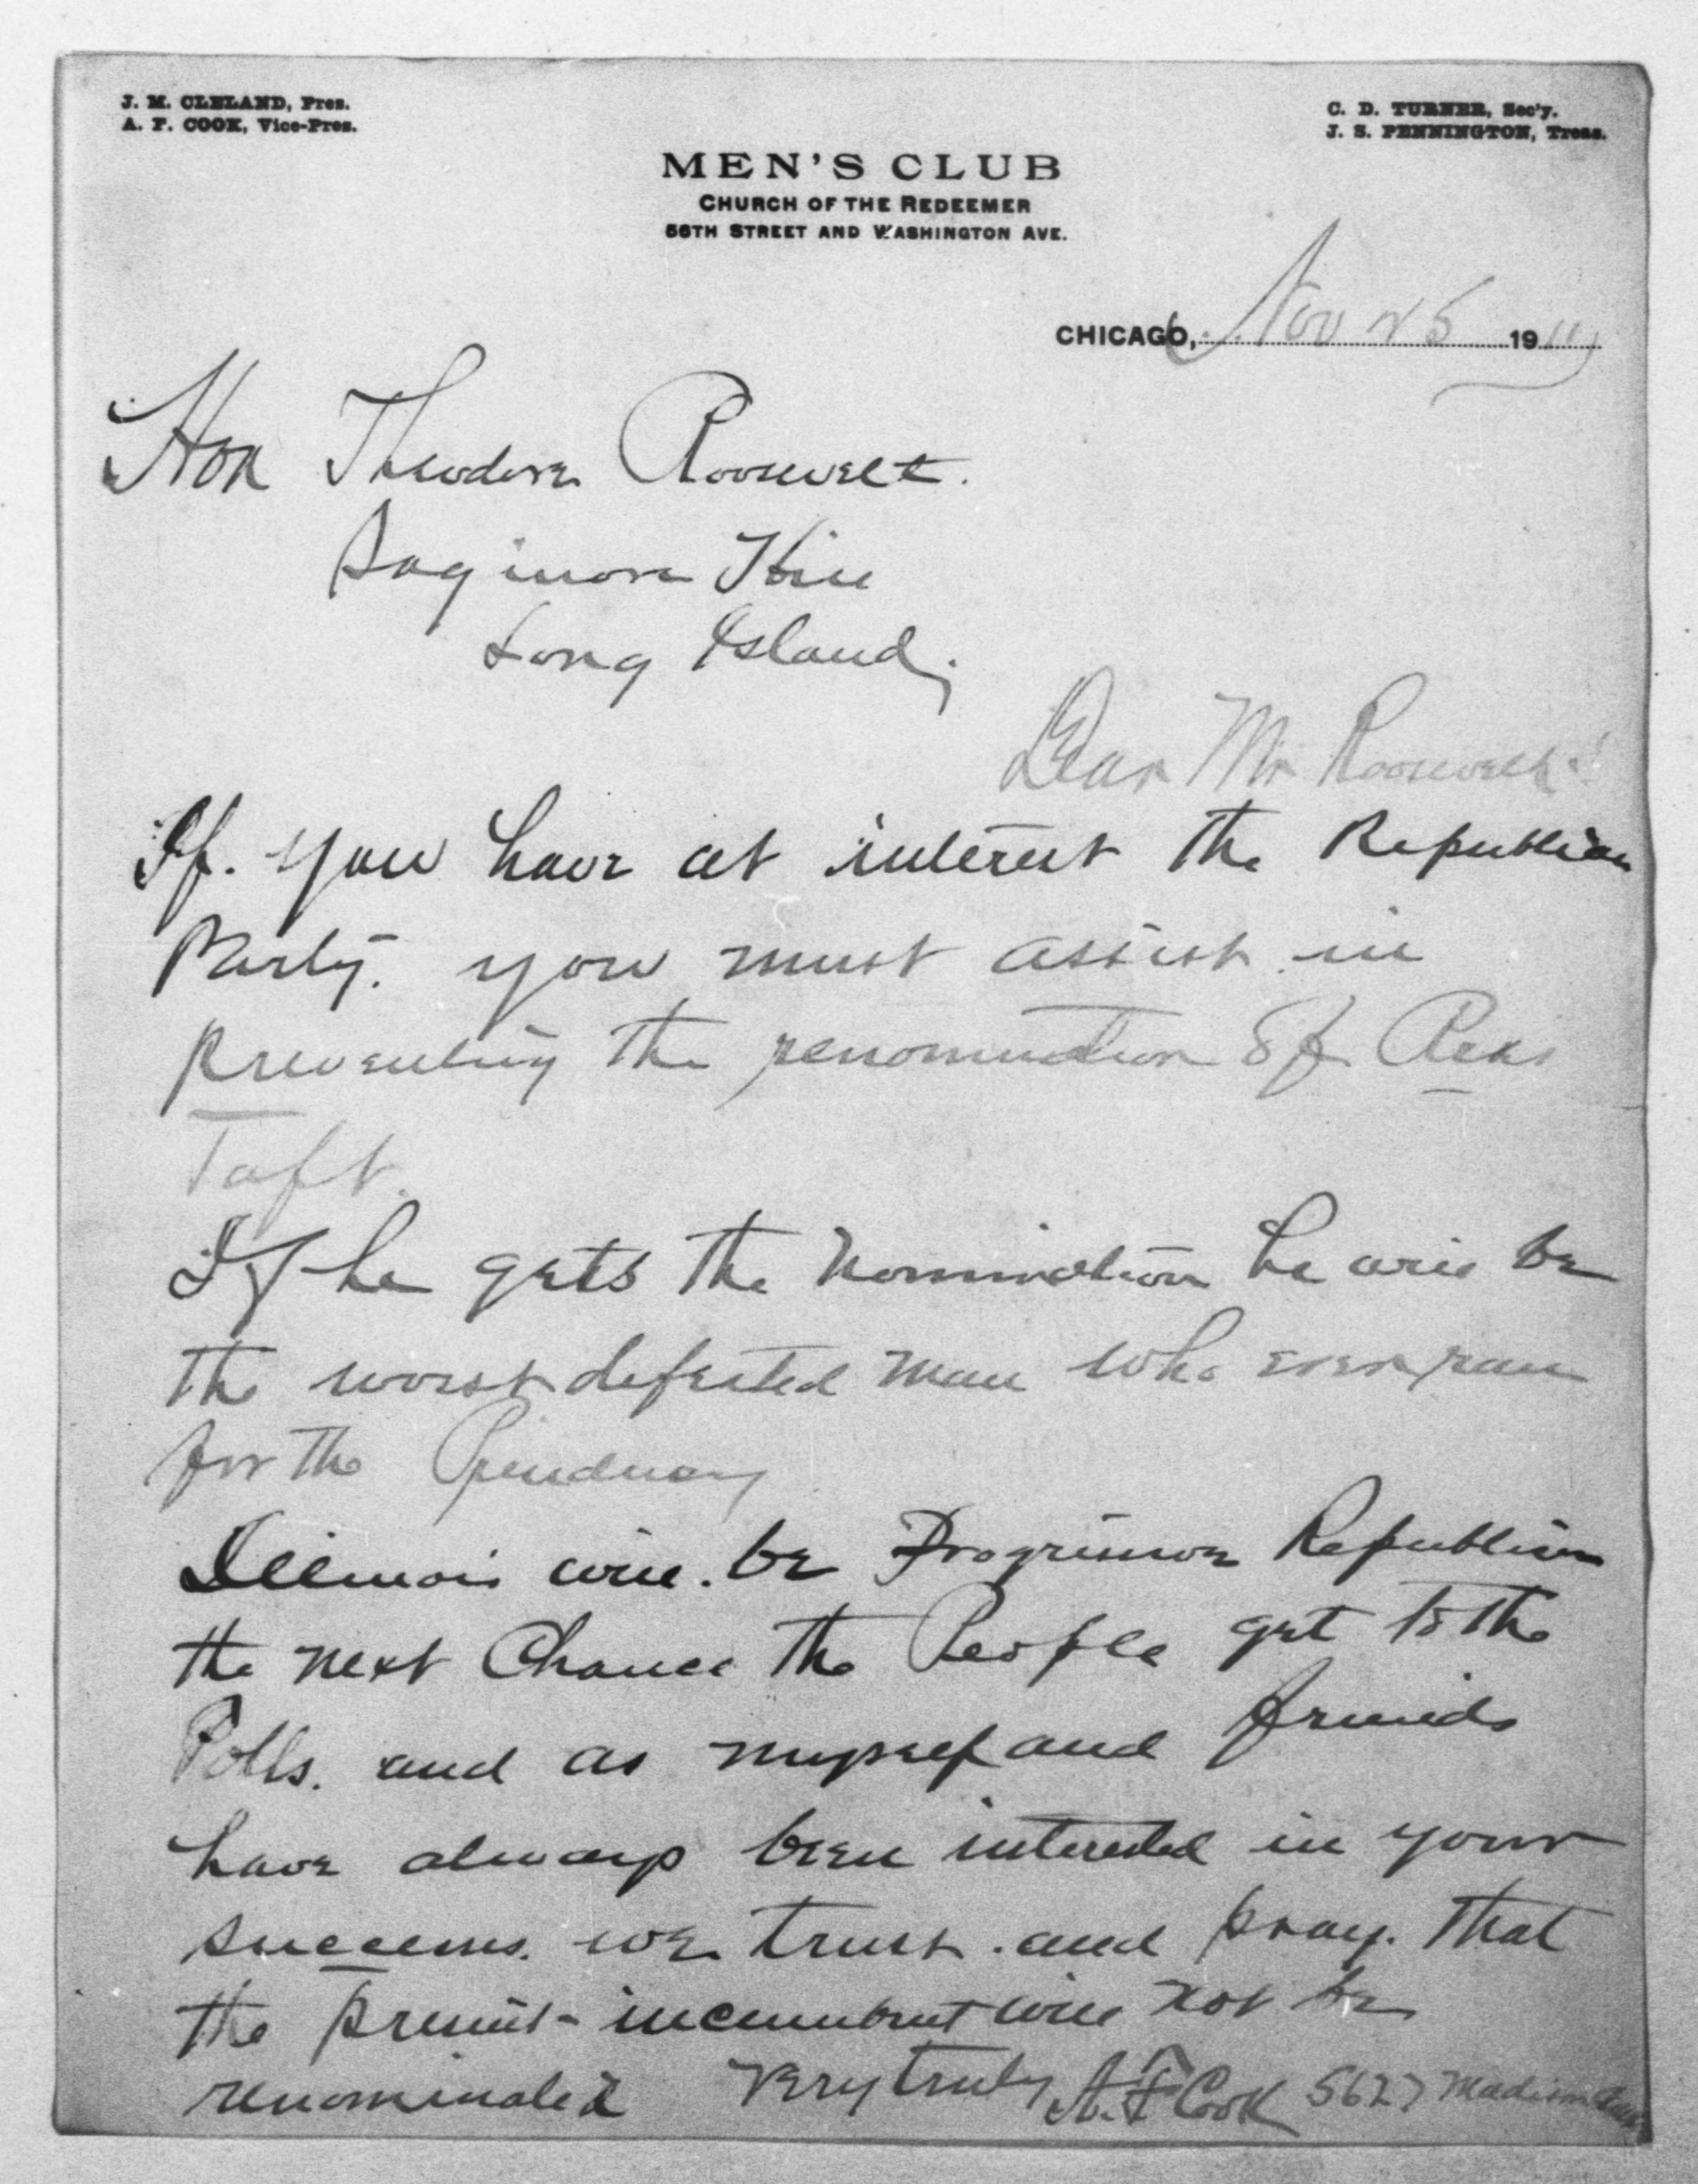 J. M. CLELAND, Pres.
A. F. COOK, Vice-Pres.
C. D. TURNER, Sec'y.
J. S. PENNINGTON, Treas.
MEN'S CLUB
CHURCH OF THE REDEEMER
56TH STREET AND WASHINGTON AVE.
CHICAGO, Nov 25 1911
Hon Theodore Roosevelt.
Sagimore Hill
Long Island.
Dear Mr Roosevelt:
If. you have at interest the Republican
Party. you must assist in
preventing the renomination of Pres
Taft.
If he gets the nomination he will be
the worst defeated man who ever ran
for the Presidency
Illinois will. be Progressive Republican
the next Chance the People get to the
Polls. and as myself and friends
have always been interested in your
success. we trust. and pray. that
the present incumbent will not be
renominated Very truly A. F. Cook 5627 Madison Ave